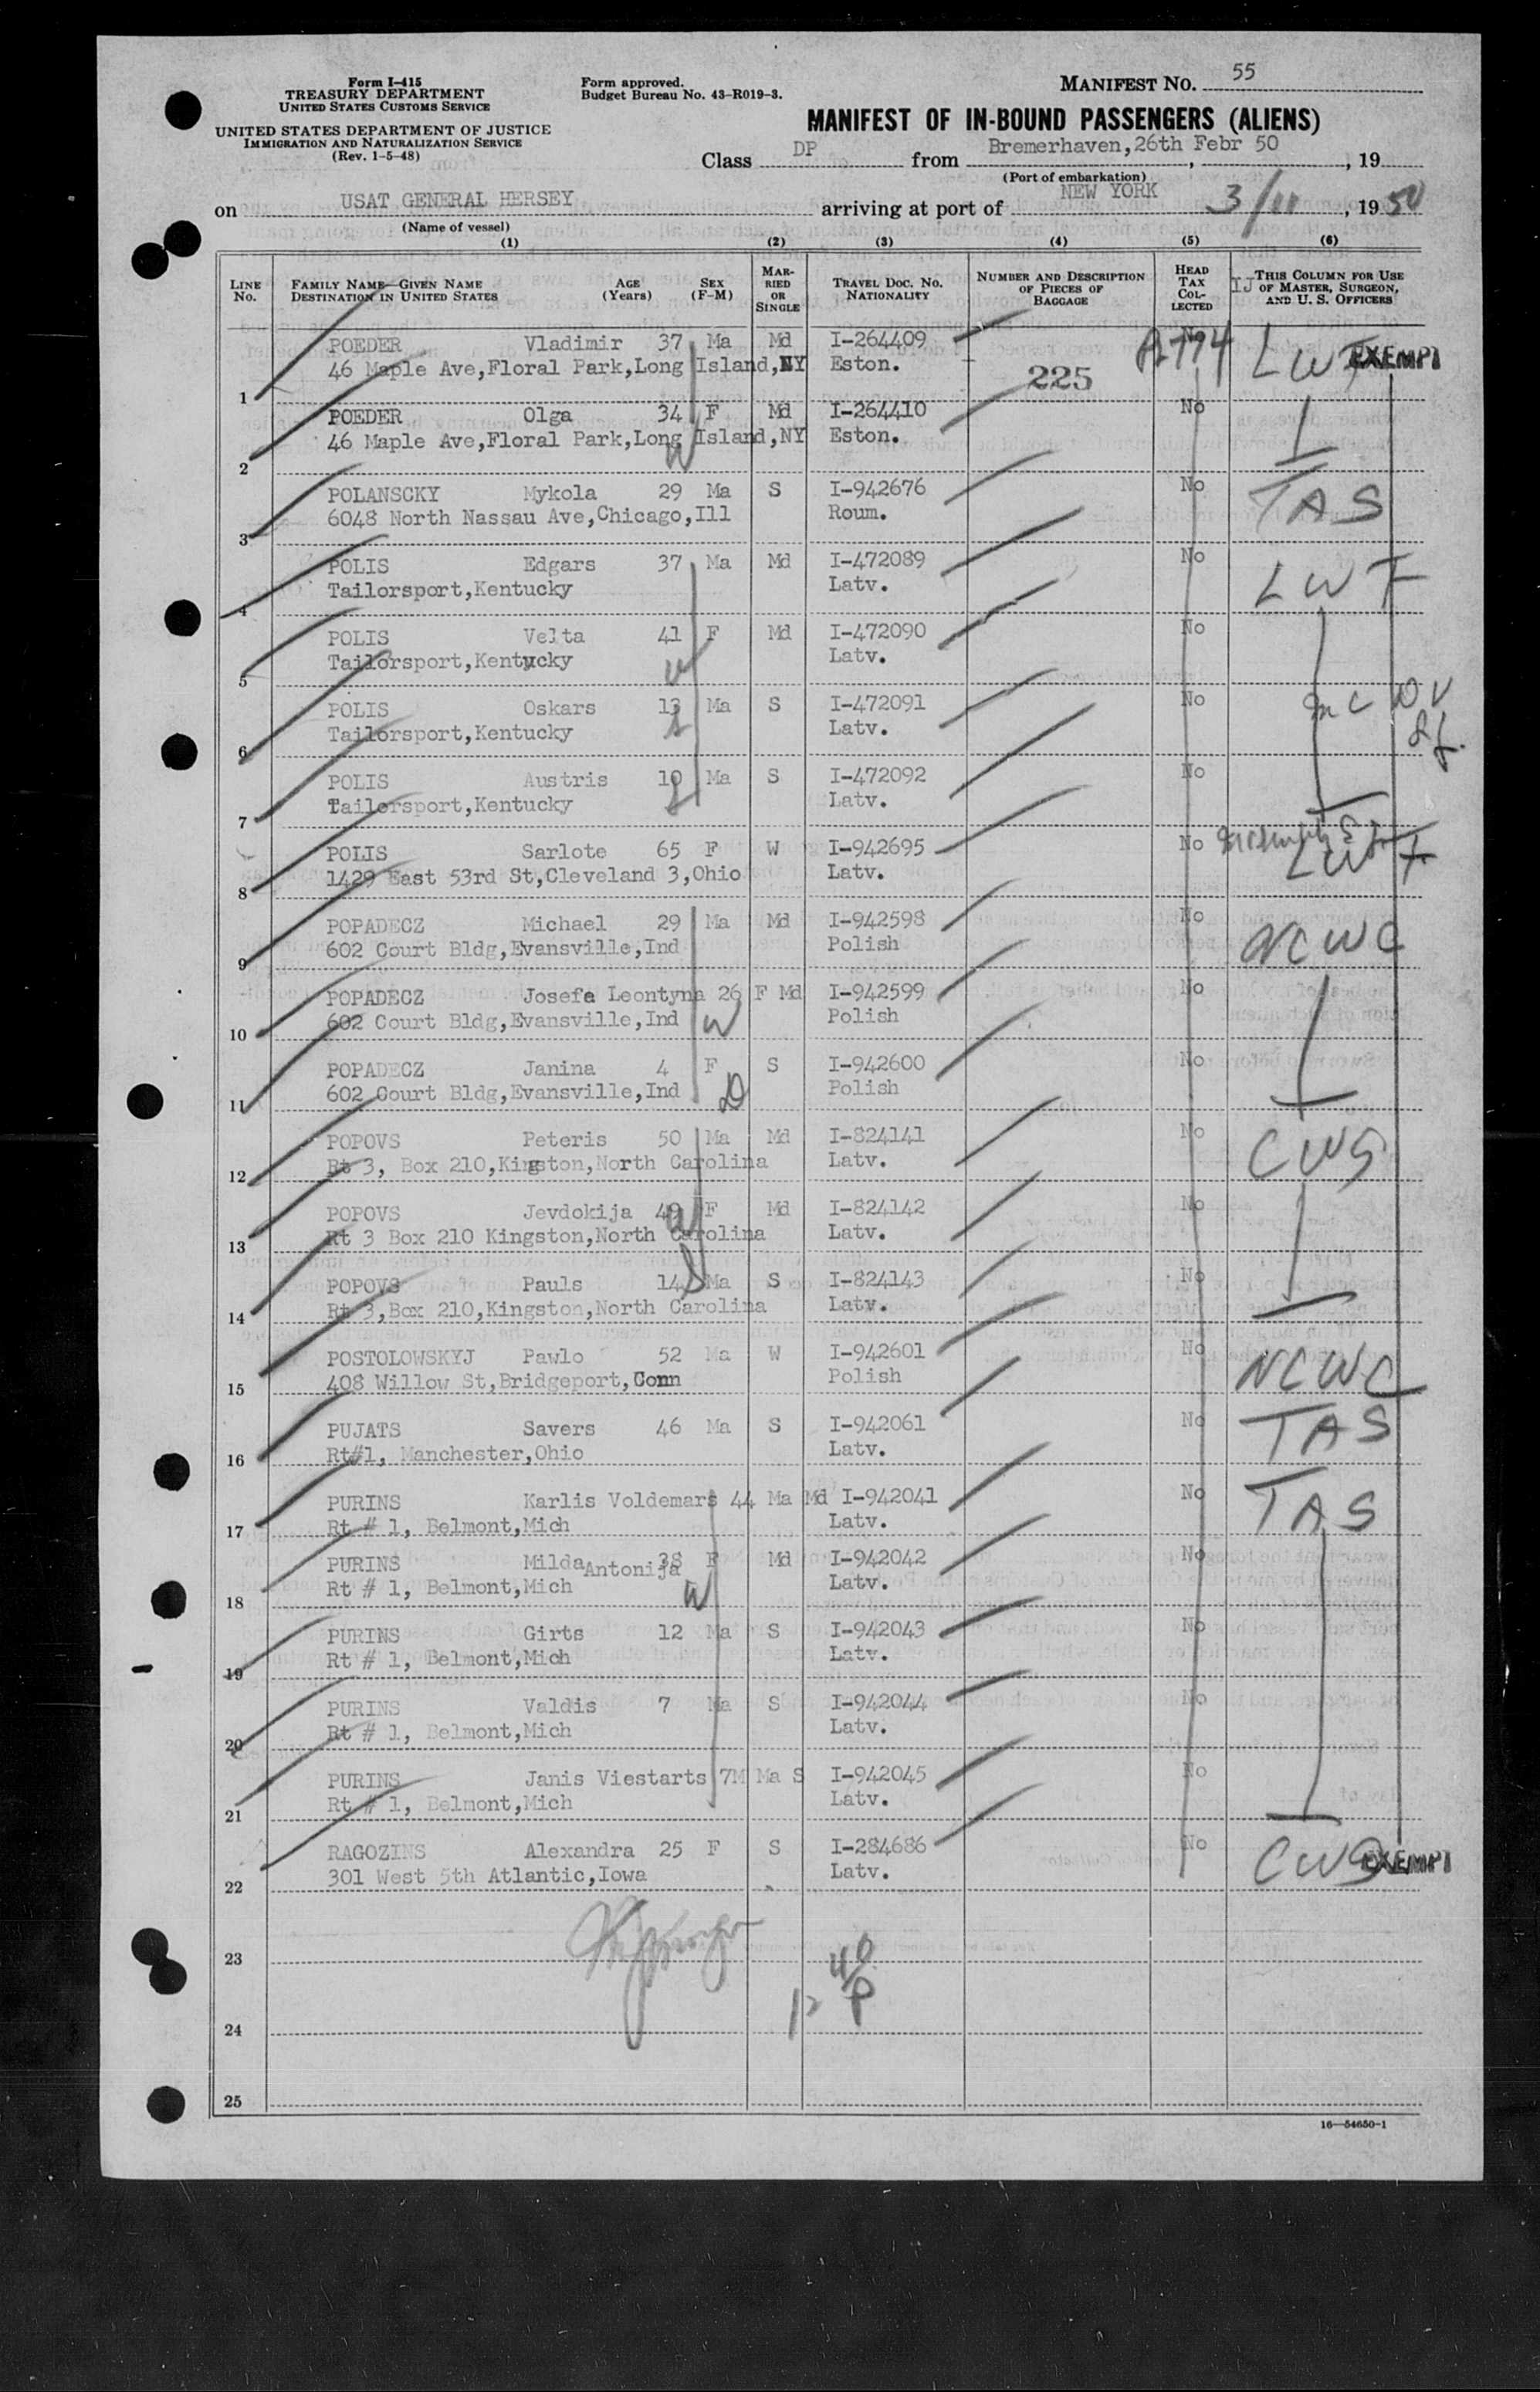 Form I-415
TREASURY DEPARTMENT
UNITED STATES CUSTOMS SERVICE
UNITED STATES DEPARTMENT OF JUSTICE
IMMIGRATION AND NATURALIZATION SERVICE
(Rev. 1-5-48)
Form approved.
Budget Bureau No. 43-R019-3.
MANIFEST NO. 55
MANIFEST OF IN-BOUND PASSENGERS (ALIENS)
Class DP from Bremerhaven,26th Febr 50, 19
(Port of embarkation)
on USAT GENERAL HERSEY arriving at port of NEW YORK 3/11, 1950
(Name of vessel)
(1) (2) (3) (4) (5) (6)
LINE NO. FAMILY NAME—GIVEN NAME DESTINATION IN UNITED STATES AGE (Years) SEX (F-M) MARRIED OR SINGLE TRAVEL DOC. NO. NATIONALITY NUMBER AND DESCRIPTION OF PIECES OF BAGGAGE HEAD TAX COLLECTED IJ THIS COLUMN FOR USE OF MASTER, SURGEON, AND U. S. OFFICERS
POEDER Vladimir 37 Ma Md I-264409 No LWF EXEMPT
1 46 Maple Ave,Floral Park,Long Island,NY Eston. 225
POEDER Olga 34 F Md I-264410 No
2 46 Maple Ave,Floral Park,Long Island,NY Eston.
W
POLANSCKY Mykola 29 Ma S I-942676 No TAS
3 6048 North Nassau Ave,Chicago,Ill Roum.
POLIS Edgars 37 Ma Md I-472089 No LWF
4 Tailorsport,Kentucky Latv.
POLIS Velta 41 F Md I-472090 No
5 Tailorsport,Kentucky W Latv.
POLIS Oskars 13 Ma S I-472091 No
6 Tailorsport,Kentucky Latv.
POLIS Austris 10 Ma S I-472092 No
7 Tailorsport,Kentucky Latv.
POLIS Sarlote 65 F W I-942695 No LWF
8 1429 East 53rd St,Cleveland 3,Ohio Latv.
POPADECZ Michael 29 Ma Md I-942598 No NCWC
9 602 Court Bldg,Evansville,Ind Polish
POPADECZ Josefa Leontyna 26 F Md I-942599 No
10 602 Court Bldg,Evansville,Ind W Polish
POPADECZ Janina 4 F S I-942600 No
11 602 Court Bldg,Evansville,Ind D Polish
POPOVS Peteris 50 Ma Md I-824141 No CWS
12 Rt 3, Box 210,Kingston,North Carolina Latv.
POPOVS Jevdokija 49 F Md I-824142 No
13 Rt 3 Box 210 Kingston,North Carolina Latv.
POPOVS Pauls 14 Ma S I-824143 No
14 Rt 3,Box 210,Kingston,North Carolina Latv.
POSTOLOWSKYJ Pawlo 52 Ma W I-942601 No NCWC
15 408 Willow St,Bridgeport,Conn Polish
PUJATS Savers 46 Ma S I-942061 No TAS
16 Rt#1, Manchester,Ohio Latv.
PURINS Karlis Voldemars 44 Ma Md I-942041 No TAS
17 Rt # 1, Belmont,Mich Latv.
PURINS Milda Antonija 38 F Md I-942042 No
18 Rt # 1, Belmont,Mich W Latv.
PURINS Girts 12 Ma S I-942043 No
19 Rt # 1, Belmont,Mich Latv.
PURINS Valdis 7 Ma S I-942044 No
20 Rt # 1, Belmont,Mich Latv.
PURINS Janis Viestarts 7M Ma S I-942045 No
21 Rt # 1, Belmont,Mich Latv.
RAGOZINS Alexandra 25 F S I-284686 No CWS EXEMPT
22 301 West 5th Atlantic,Iowa Latv.
23
24
25
16—54650-1